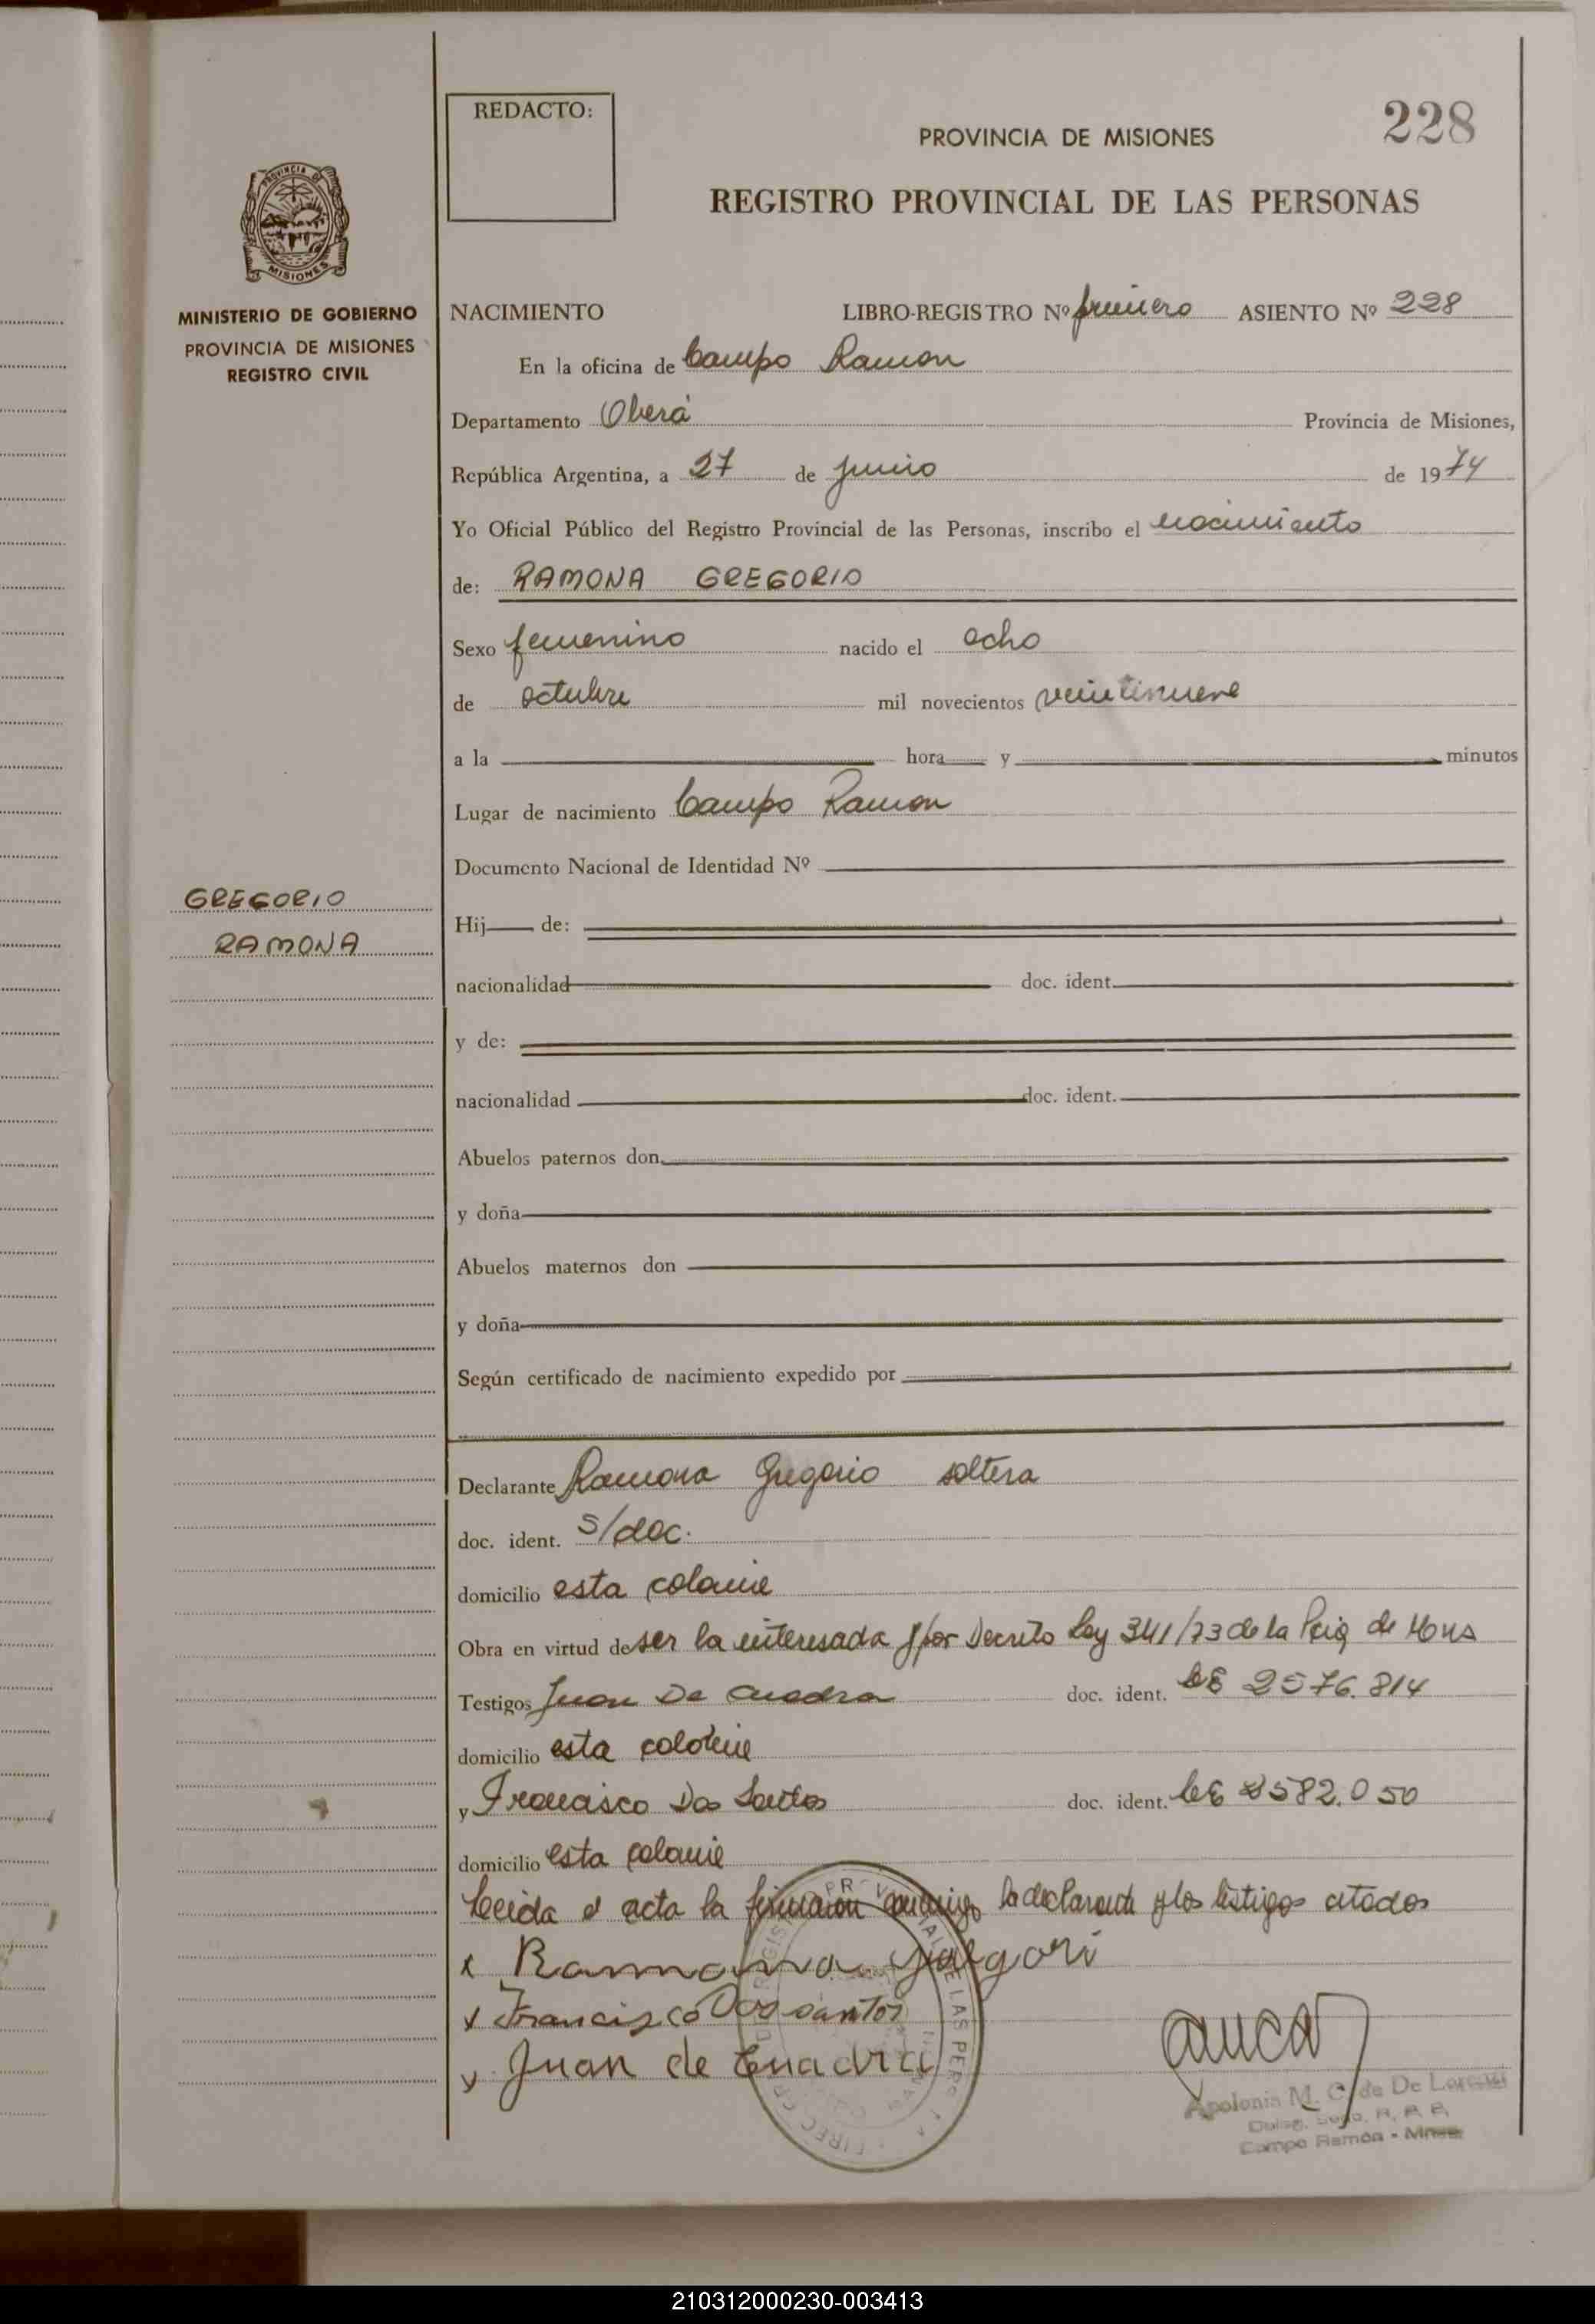 REDACTO:
228
PROVINCIA DE MISIONES
REGISTRO PROVINCIAL DE LAS PERSONAS
PROVINCIA DE
MISIONES
MINISTERIO DE GOBIERNO
PROVINCIA DE MISIONES
REGISTRO CIVIL
NACIMIENTO LIBRO-REGISTRO Nº primero ASIENTO Nº 228
En la oficina de Campo Ramon
Departamento Oberá Provincia de Misiones,
República Argentina, a 27 de junio de 1974
Yo Oficial Público del Registro Provincial de las Personas, inscribo el nacimiento
de: RAMONA GREGORIO
Sexo femenino nacido el ocho
de octubre mil novecientos veintinueve
a la hora y minutos
Lugar de nacimiento Campo Ramon
Documento Nacional de Identidad Nº
GREGORIO
RAMONA
Hij de:
nacionalidad doc. ident.
y de:
nacionalidad doc. ident.
Abuelos paternos don
y doña
Abuelos maternos don
y doña
Según certificado de nacimiento expedido por
Declarante Ramona Gregorio soltera
doc. ident. S/doc.
domicilio esta colonia
Obra en virtud de ser la interesada y por Decreto Ley 341/73 de la Pcia de Mnes
Testigos Juan De Cuadra doc. ident. LE 2576.814
domicilio esta colonia
y Francisco Dos Santos doc. ident. LE 582.050
domicilio esta colonia
Leida el acta la firman conmigo la declarante y los testigos citados
x Ramona
x Francisco Dos santos
x Juan de Cuadra
Apolonia M. C. de De
Campo Ramón - Mnes
210312000230-003413